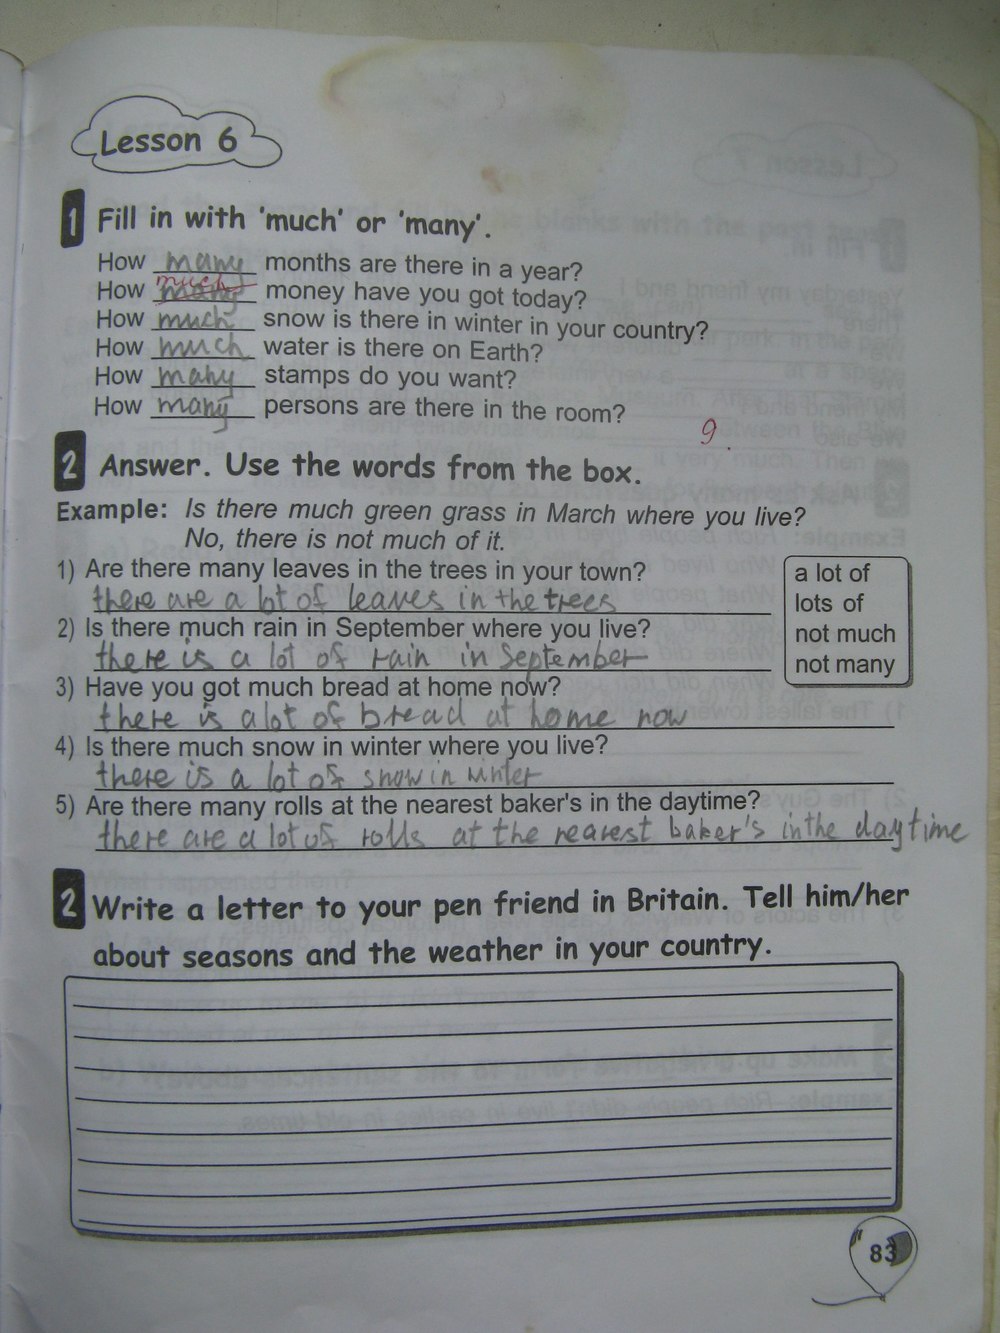 Lesson 6
1 Fill in with 'much' or 'many'.
How many months are there in a year?
much
How many money have you got today?
How much snow is there in winter in your country?
How much water is there on Earth?
How many stamps do you want?
How many persons are there in the room?
9
2 Answer. Use the words from the box.
Example: Is there much green grass in March where you live?
No, there is not much of it.
1) Are there many leaves in the trees in your town?
there are a lot of leaves in the trees
2) Is there much rain in September where you live?
there is a lot of rain in September
3) Have you got much bread at home now?
there is a lot of bread at home now
4) Is there much snow in winter where you live?
there is a lot of snow in winter
5) Are there many rolls at the nearest baker's in the daytime?
there are a lot of rolls at the nearest baker's in the daytime
a lot of
lots of
not much
not many
2 Write a letter to your pen friend in Britain. Tell him/her
about seasons and the weather in your country.
83